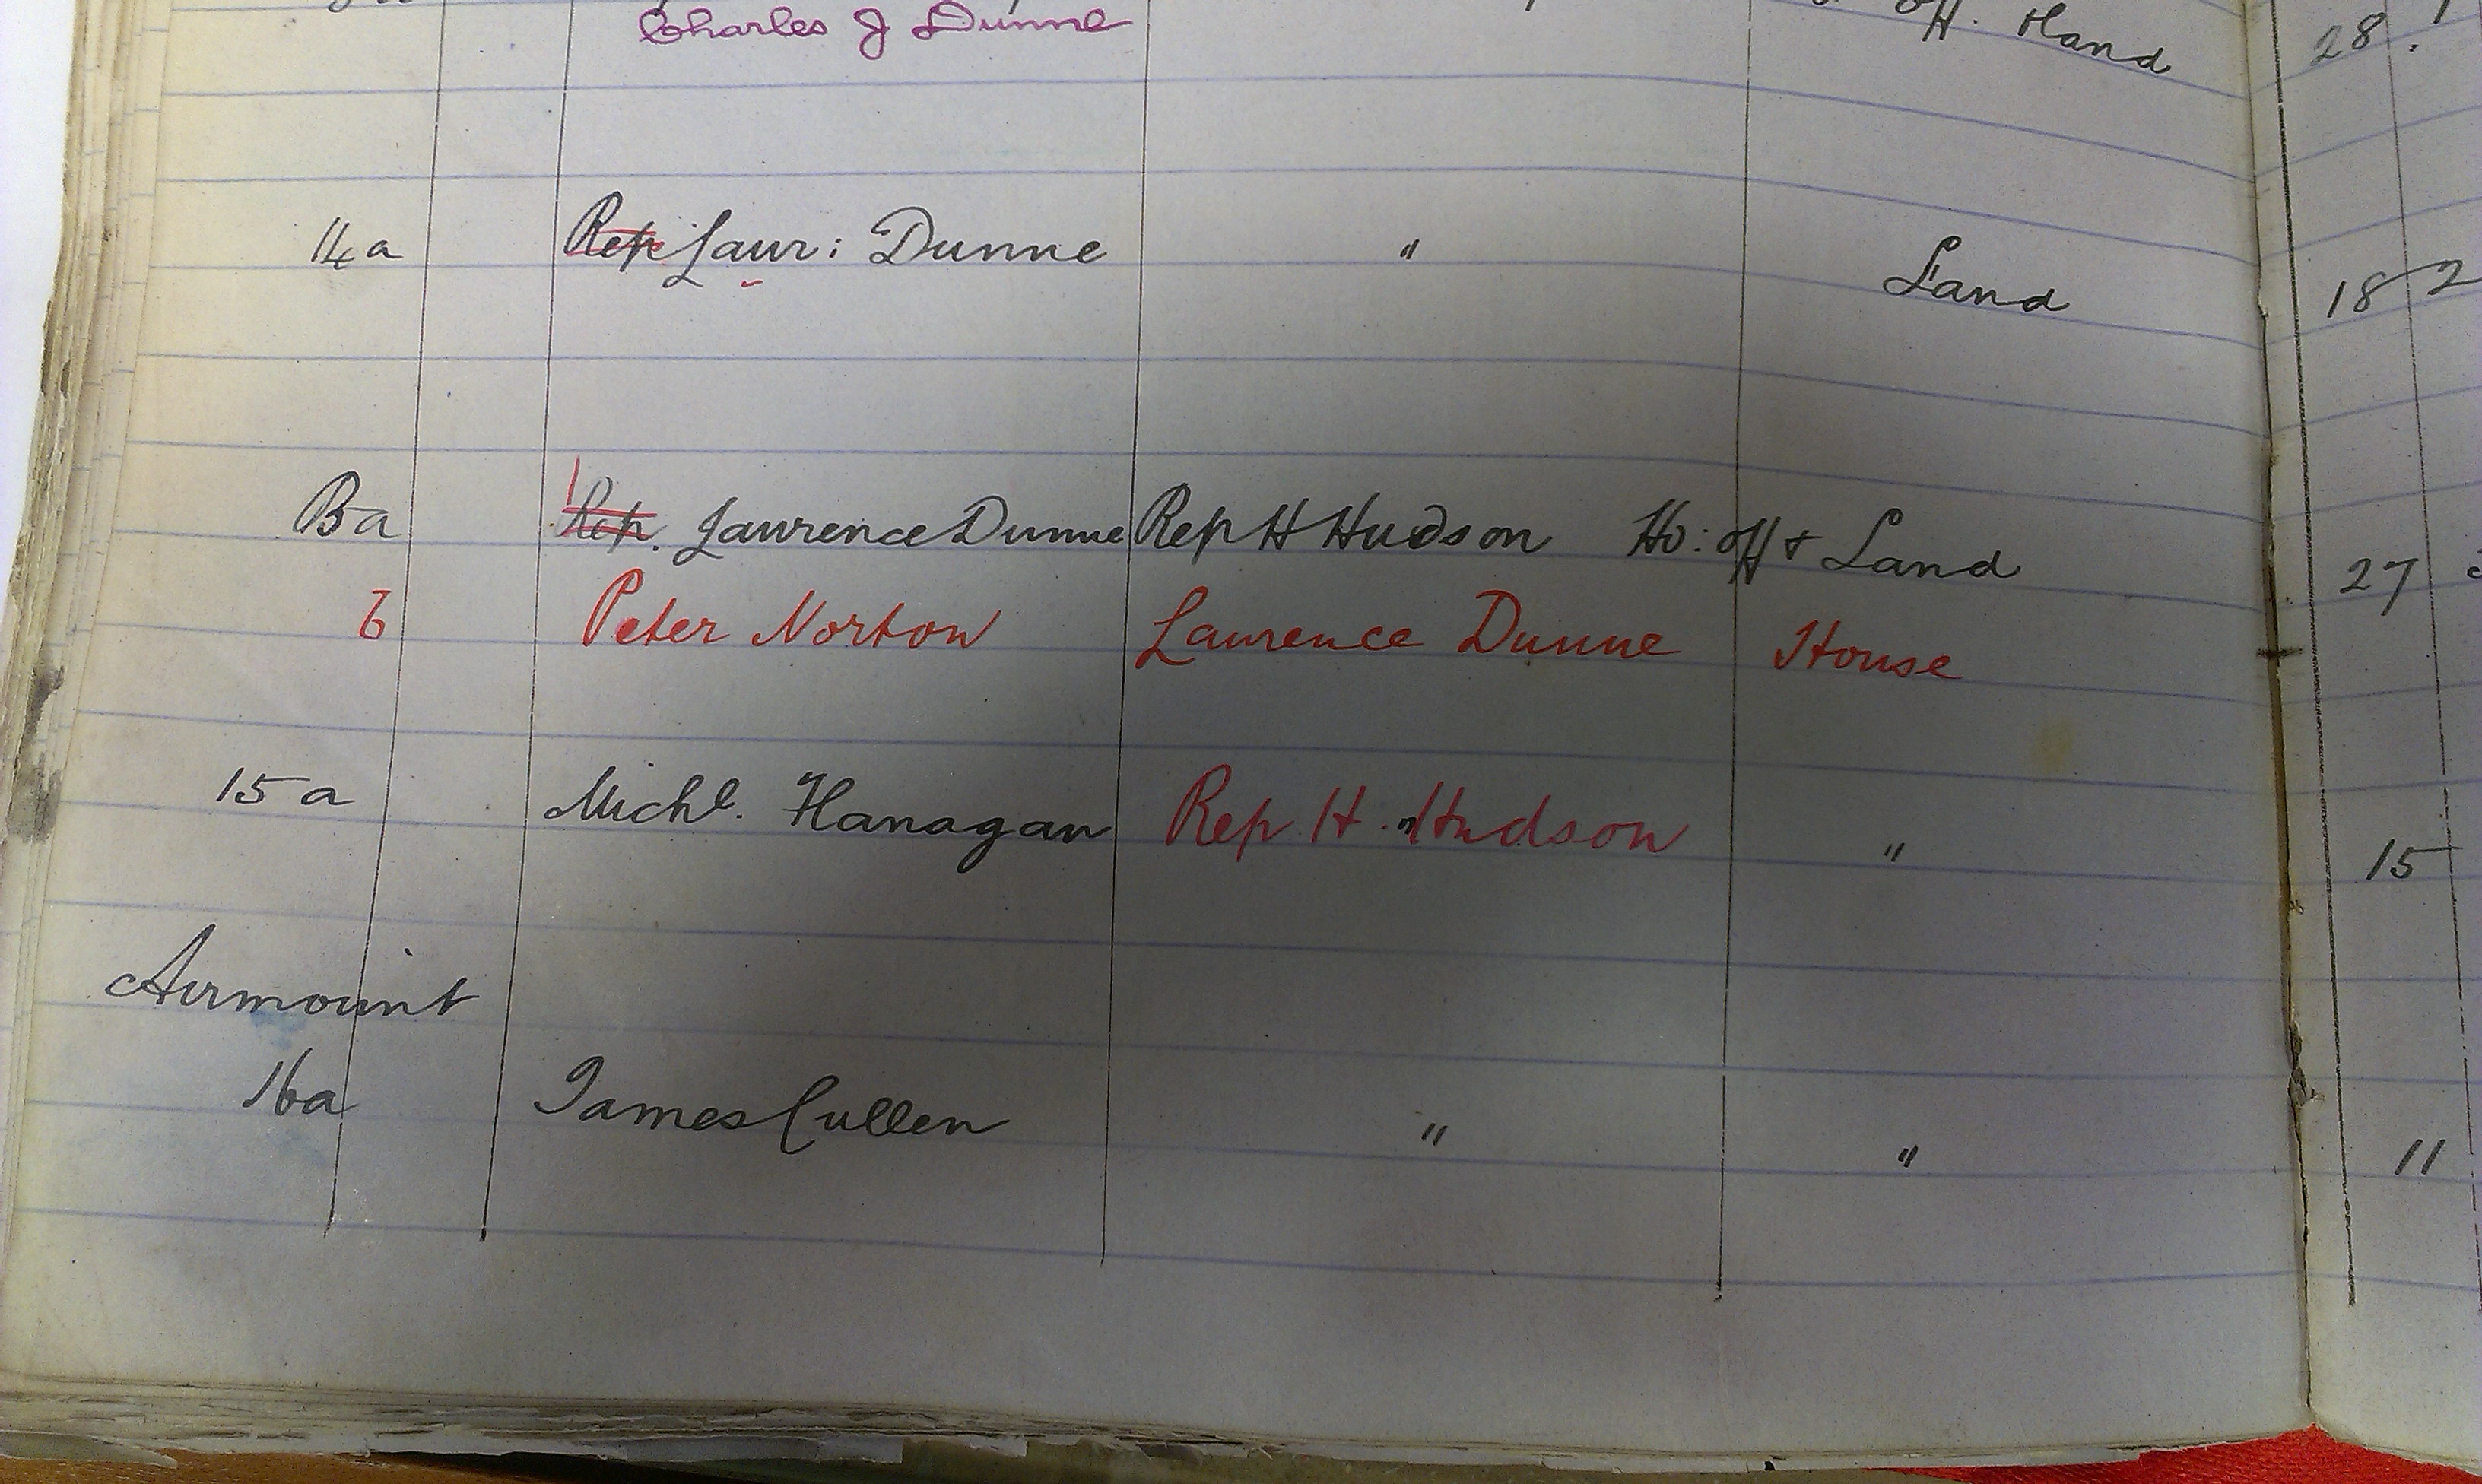 Charles J Dunne
off. Hand 28.
14a Rep Laur: Dunne " Land 18 2
Ba Rep. Laurence Dunne Rep H Hudson Ho: off & Land 27
b Peter Norton Laurence Dunne House
15a Michl. Flanagan Rep. H. Hudson " 15
Airmount
16a James Cullen " " 11